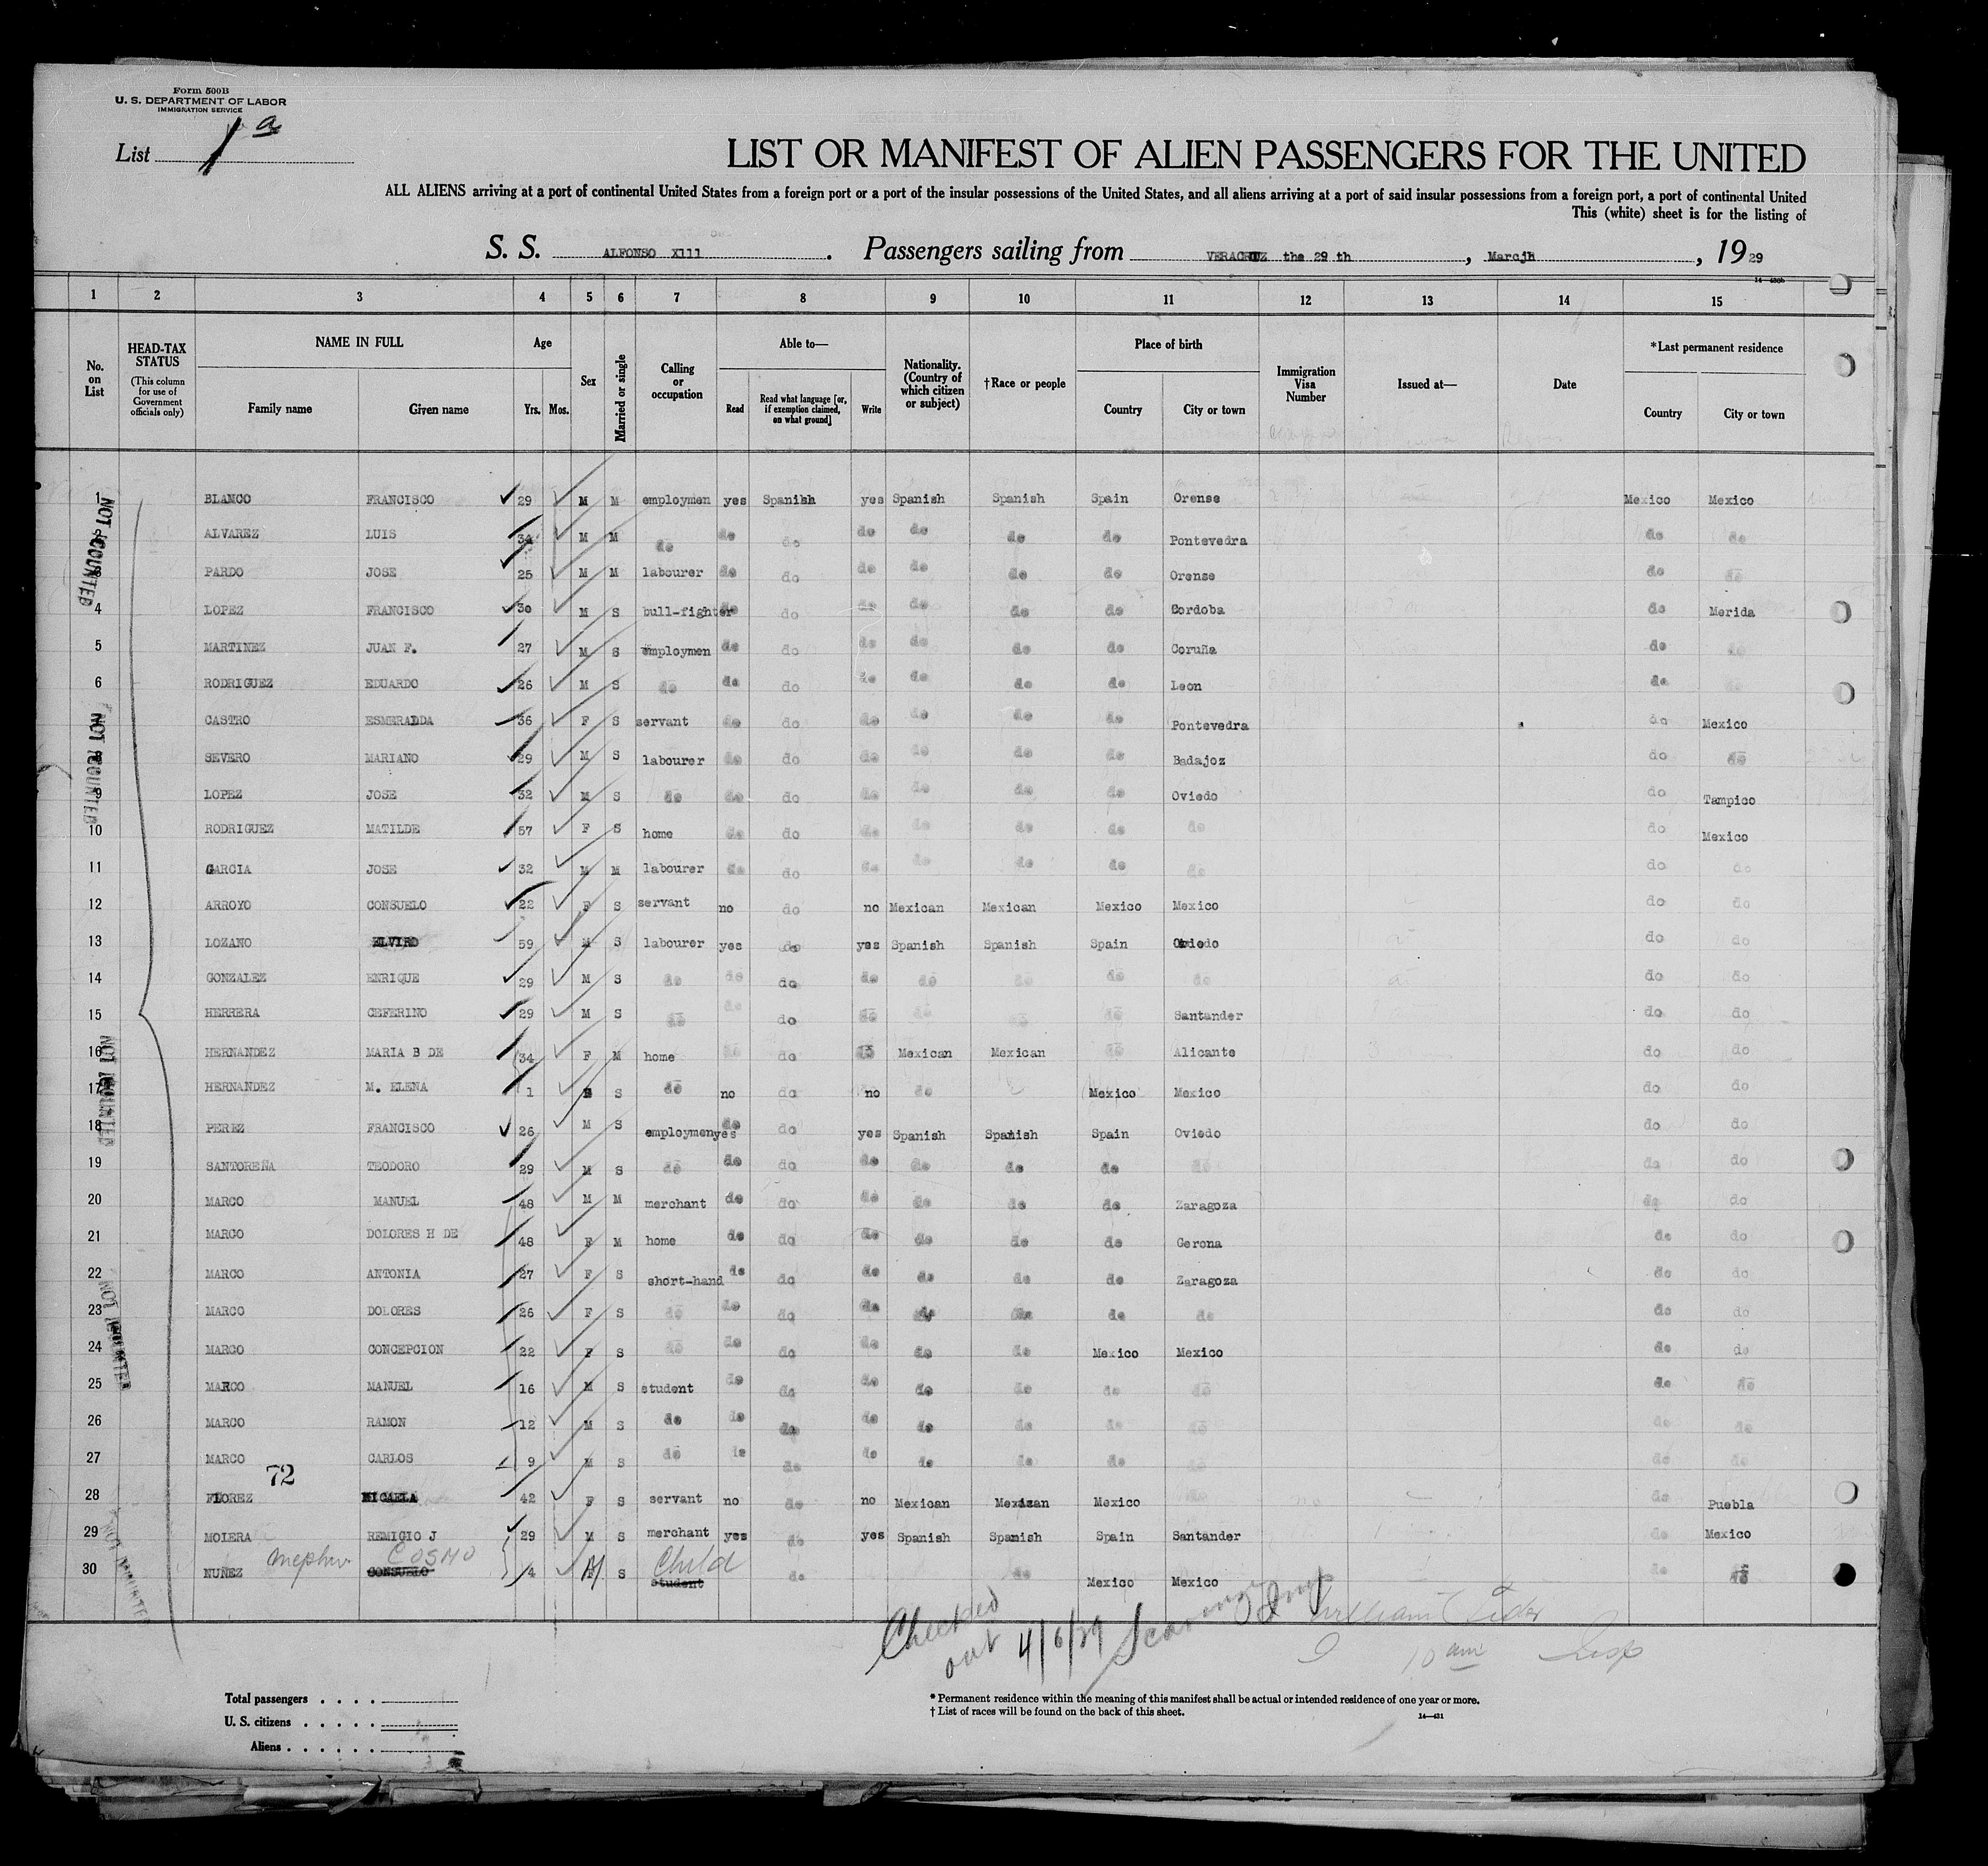 Form 500B
U. S. DEPARTMENT OF LABOR
IMMIGRATION SERVICE
List 1 a
LIST OR MANIFEST OF ALIEN PASSENGERS FOR THE UNITED
ALL ALIENS arriving at a port of continental United States from a foreign port or a port of the insular possessions of the United States, and all aliens arriving at a port of said insular possessions from a foreign port, a port of continental United
This (white) sheet is for the listing of
S. S. ALFONSO X111 . Passengers sailing from VERACRUZ the 29 th , Marcjh , 19 29
1 2 3 4 5 6 7 8 9 10 11 12 13 14 15
No. on List HEAD-TAX STATUS (This column for use of Government officials only) NAME IN FULL Family name Given name Age Yrs. Mos. Sex Married or single Calling or occupation Able to— Read Read what language [or, if exemption claimed, on what ground] Write Nationality. (Country of which citizen or subject) †Race or people Place of birth Country City or town Immigration Visa Number Issued at— Date *Last permanent residence Country City or town
1 BLANCO FRANCISCO 29 M M employmen yes Spanish yes Spanish Spanish Spain Orense Mexico Mexico
ALVAREZ LUIS 34 M M do do do do do do do Pontevedra do do
3 PARDO JOSE 25 M M labourer do do do do do do Orense do do
4 LOPEZ FRANCISCO 30 M S bull-fighter do do do do do do Cordoba do Merida
5 MARTINEZ JUAN F. 27 M S employmen do do do do do do Coruña do do
6 RODRIGUEZ EDUARDO 26 M S do do do do do do do Leon do do
CASTRO ESMERALDA 36 F S servant do do do do do do Pontevedra do Mexico
SEVERO MARIANO 29 M S labourer do do do do do do Badajoz do do
9 LOPEZ JOSE 32 M S do do do do do do do Oviedo do Tampico
10 RODRIGUEZ MATILDE 57 F S home do do do do do do do do Mexico
11 GARCIA JOSE 32 M M labourer do do do do do do do do do
12 ARROYO CONSUELO 22 F S servant no do no Mexican Mexican Mexico Mexico do do
13 LOZANO ELVIRO 59 M S labourer yes do yes Spanish Spanish Spain Oviedo do do
14 GONZALEZ ENRIQUE 29 M S do do do do do do do do do do
15 HERRERA CEFERINO 29 M S do do do do do do do Santander do do
16 HERNANDEZ MARIA B DE 34 F M home do do do Mexican Mexican do Alicante do do
17 HERNANDEZ M. ELENA 1 S do no do no do Mexico Mexico do do
18 PEREZ FRANCISCO 26 M S employmen yes do do yes Spanish Spanish Spain Oviedo do do
19 SANTOREÑA TEODORO 29 M S do do do do do do do do do do
20 MARCO MANUEL 48 M M merchant do do do do do do Zaragoza do do
21 MARCO DOLORES H DE 48 F M home do do do do do do Gerona do do
22 MARCO ANTONIA 27 F S short-hand do do do do do do Zaragoza do do
23 MARCO DOLORES 26 F S do do do do do do do do do do
24 MARCO CONCEPCION 22 F S do do do do do do Mexico Mexico do do
25 MARCO MANUEL 16 M S student do do do do do do do do do
26 MARCO RAMON 12 M S do do do do do do do do do do
27 MARCO CARLOS 9 M S do do do do do do do do do do
72
28 FLOREZ MICAELA 42 F S servant no do no Mexican Mexican Mexico do do Puebla
29 MOIERA REMIGIO J 29 M S merchant yes do yes Spanish Spanish Spain Santander do Mexico
nephew COSMO Child
30 NUÑEZ CONSUELO 4 M S student do do Mexico Mexico do do
NOT COUNTED
NOT COUNTED
NOT COUNTED
NOT COUNTED
NOT COUNTED
Checked out 4/6/29
10 am Insp
Total passengers . . . .
U. S. citizens . . . . .
Aliens . . . . . .
* Permanent residence within the meaning of this manifest shall be actual or intended residence of one year or more.
† List of races will be found on the back of this sheet.
14—431